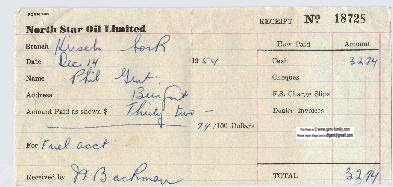 FORM 140
North Star Oil Limited
RECEIPT No 18728
Branch
Date Dec 14 1954
Name Phil
Address
Amount Paid as shown $ Thirty two —
74/100 Dollars
For Fuel acct
Received by Bachman
How Paid Amount
Cash 32 74
Cheques
F.S. Charge Slips
Dealer Invoices
TOTAL 32 74